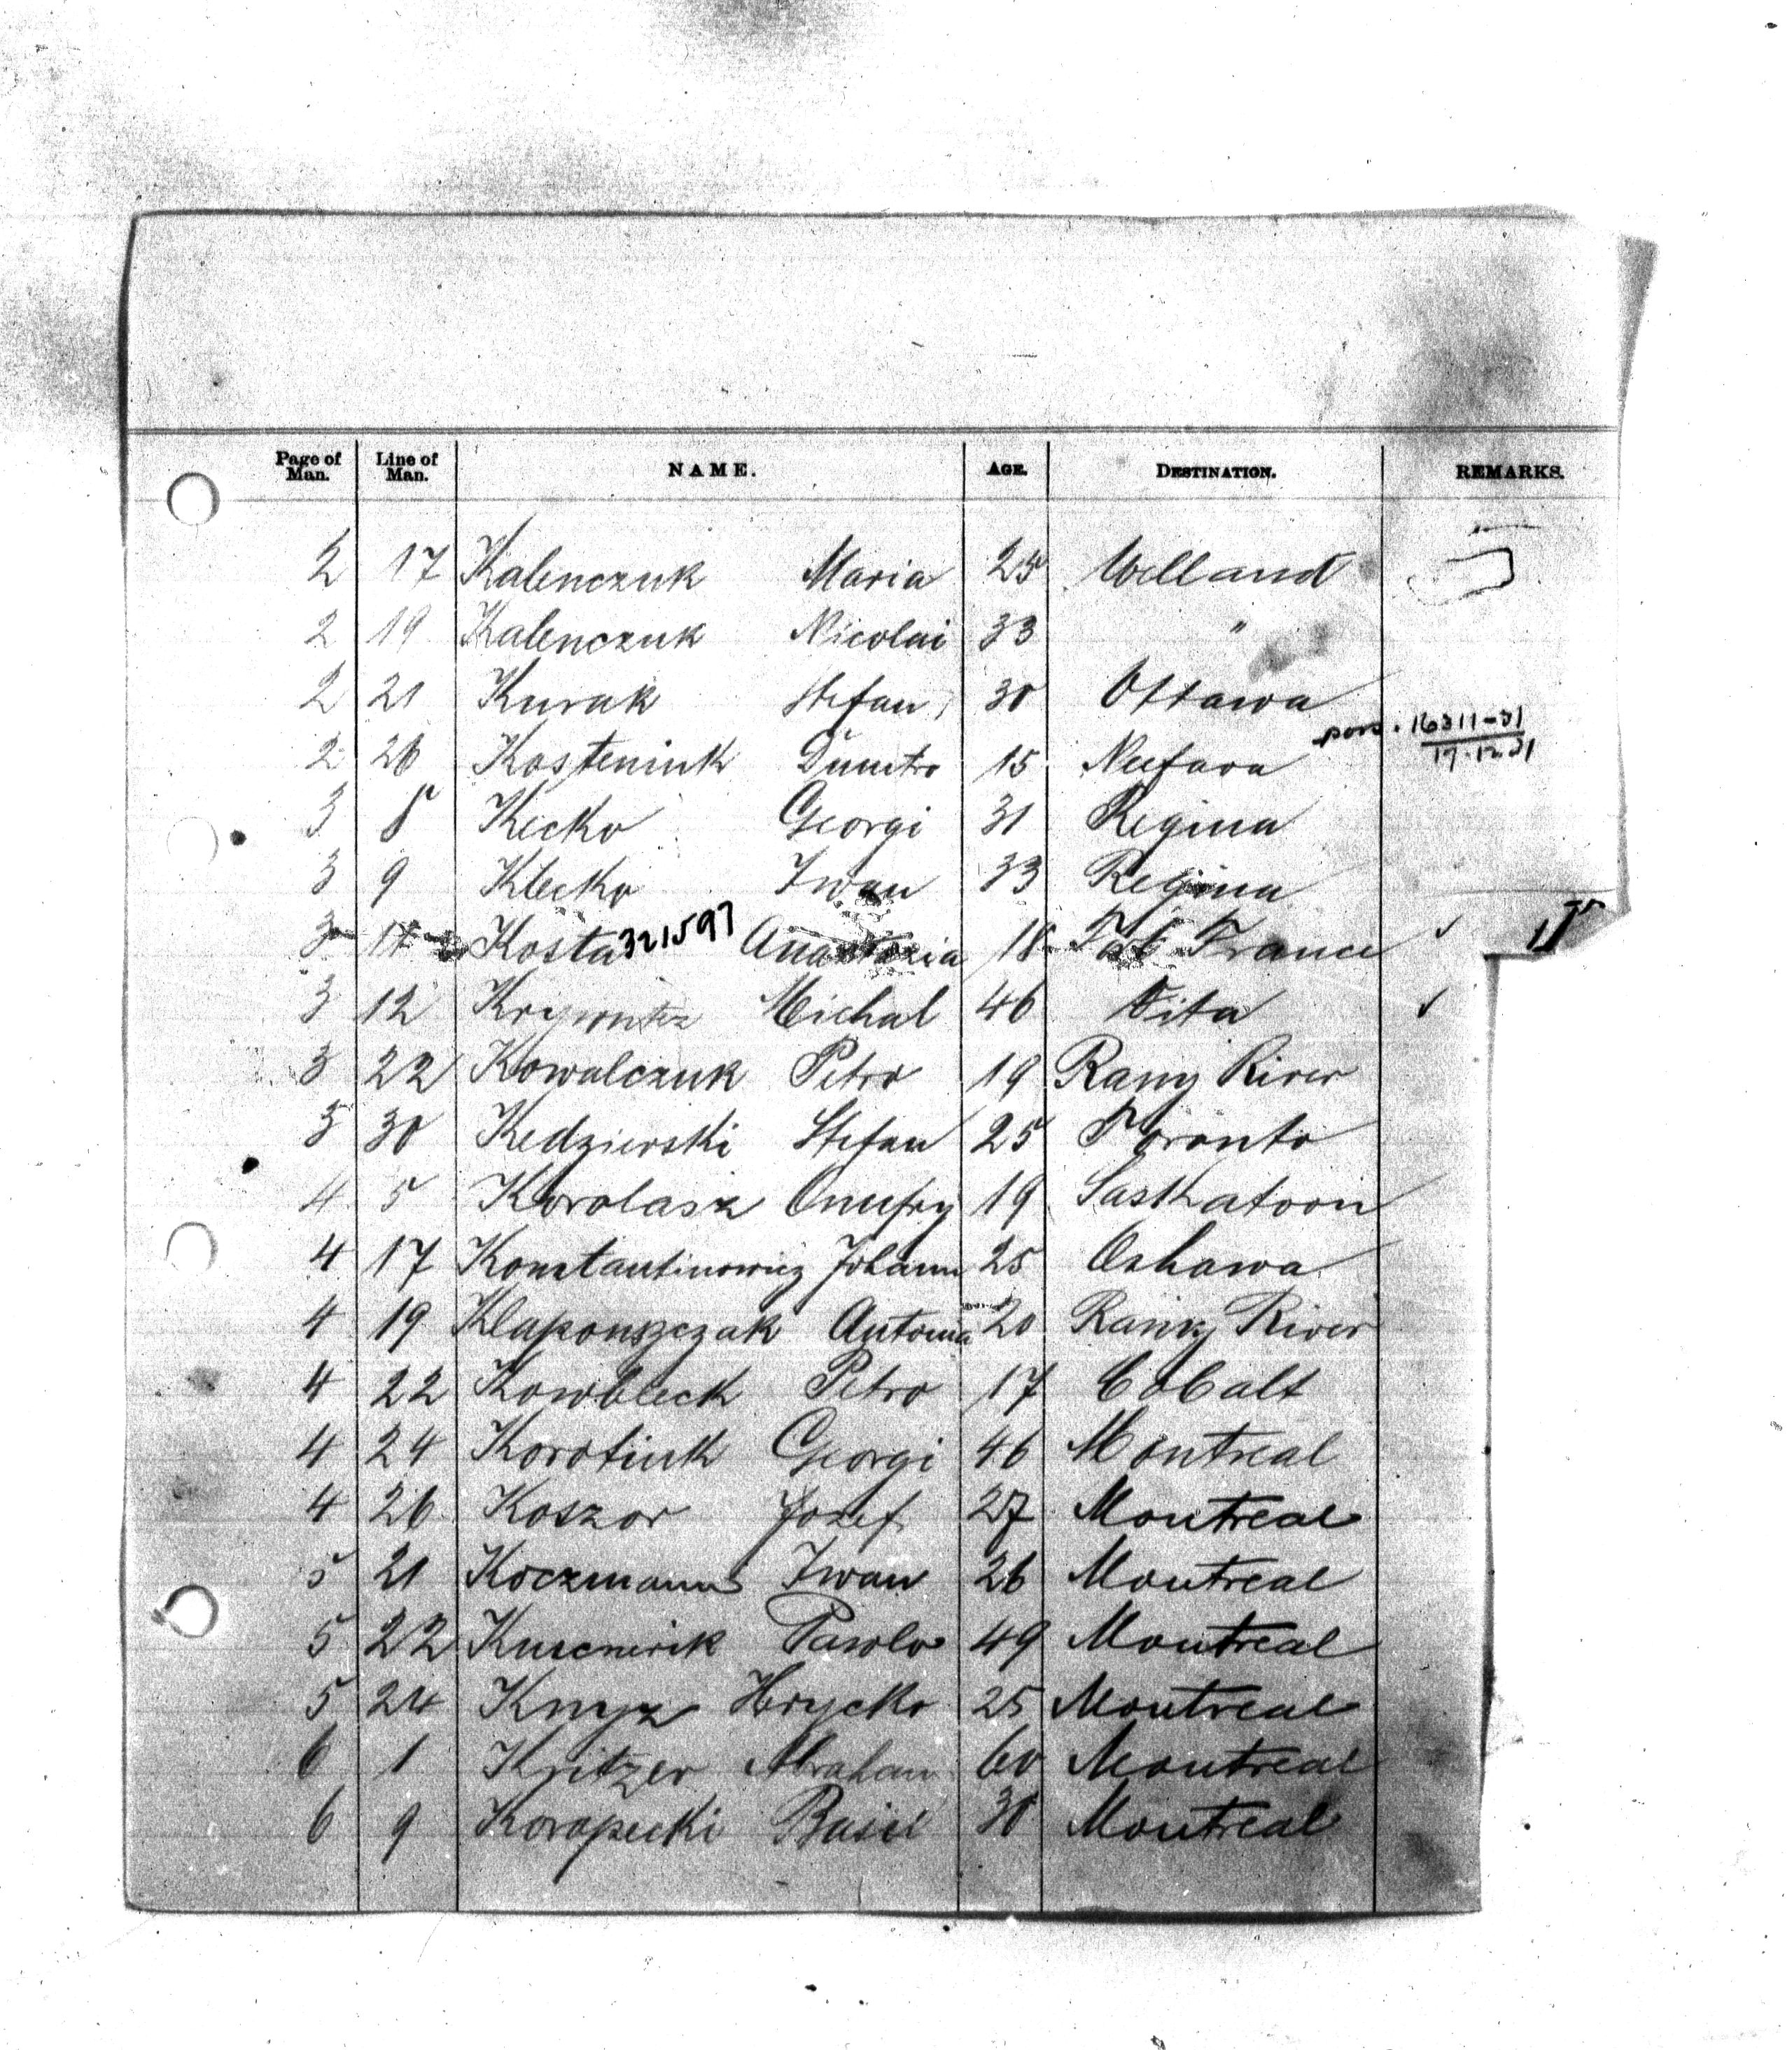 Page of Man. Line of Man. NAME. AGE. DESTINATION. REMARKS.
2 17 Kalenczuk Maria 25 Welland
2 19 Kalenczuk Nicolai 33 "
2 21 Kurak Stefan 30 Ottawa
pors. 16311-31
2 26 Kosteniuk Dumtro 15
17.12.31
3 8 Kecko Georgi 31 Regina
3 9 Klecko Iwan 33 Regina
3 11 Kosta 321597 18 Fort France ✓
3 12 Michal 46 Vita ✓
3 22 Kowalczuk Petro 19 Rany River
3 30 Kedzierski Stefan 25 Toronto
4 5 Korolasz Onufry 19 Saskatoon
4 17 Konstantinowicz Johann 25 Oshawa
4 19 Antonia 20 Rainy River
4 22 Kowbleck Petro 17 Cobalt
4 24 Korotiuk Georgi 46 Montreal
4 26 Koszor Jozef 27 Montreal
5 21 Koczmann Iwan 26 Montreal
5 22 Pawlo 49 Montreal
5 24 Knyz Hrycko 25 Montreal
6 1 Kritzer Abraham 60 Montreal
6 9 Koropecki Basil 30 Montreal